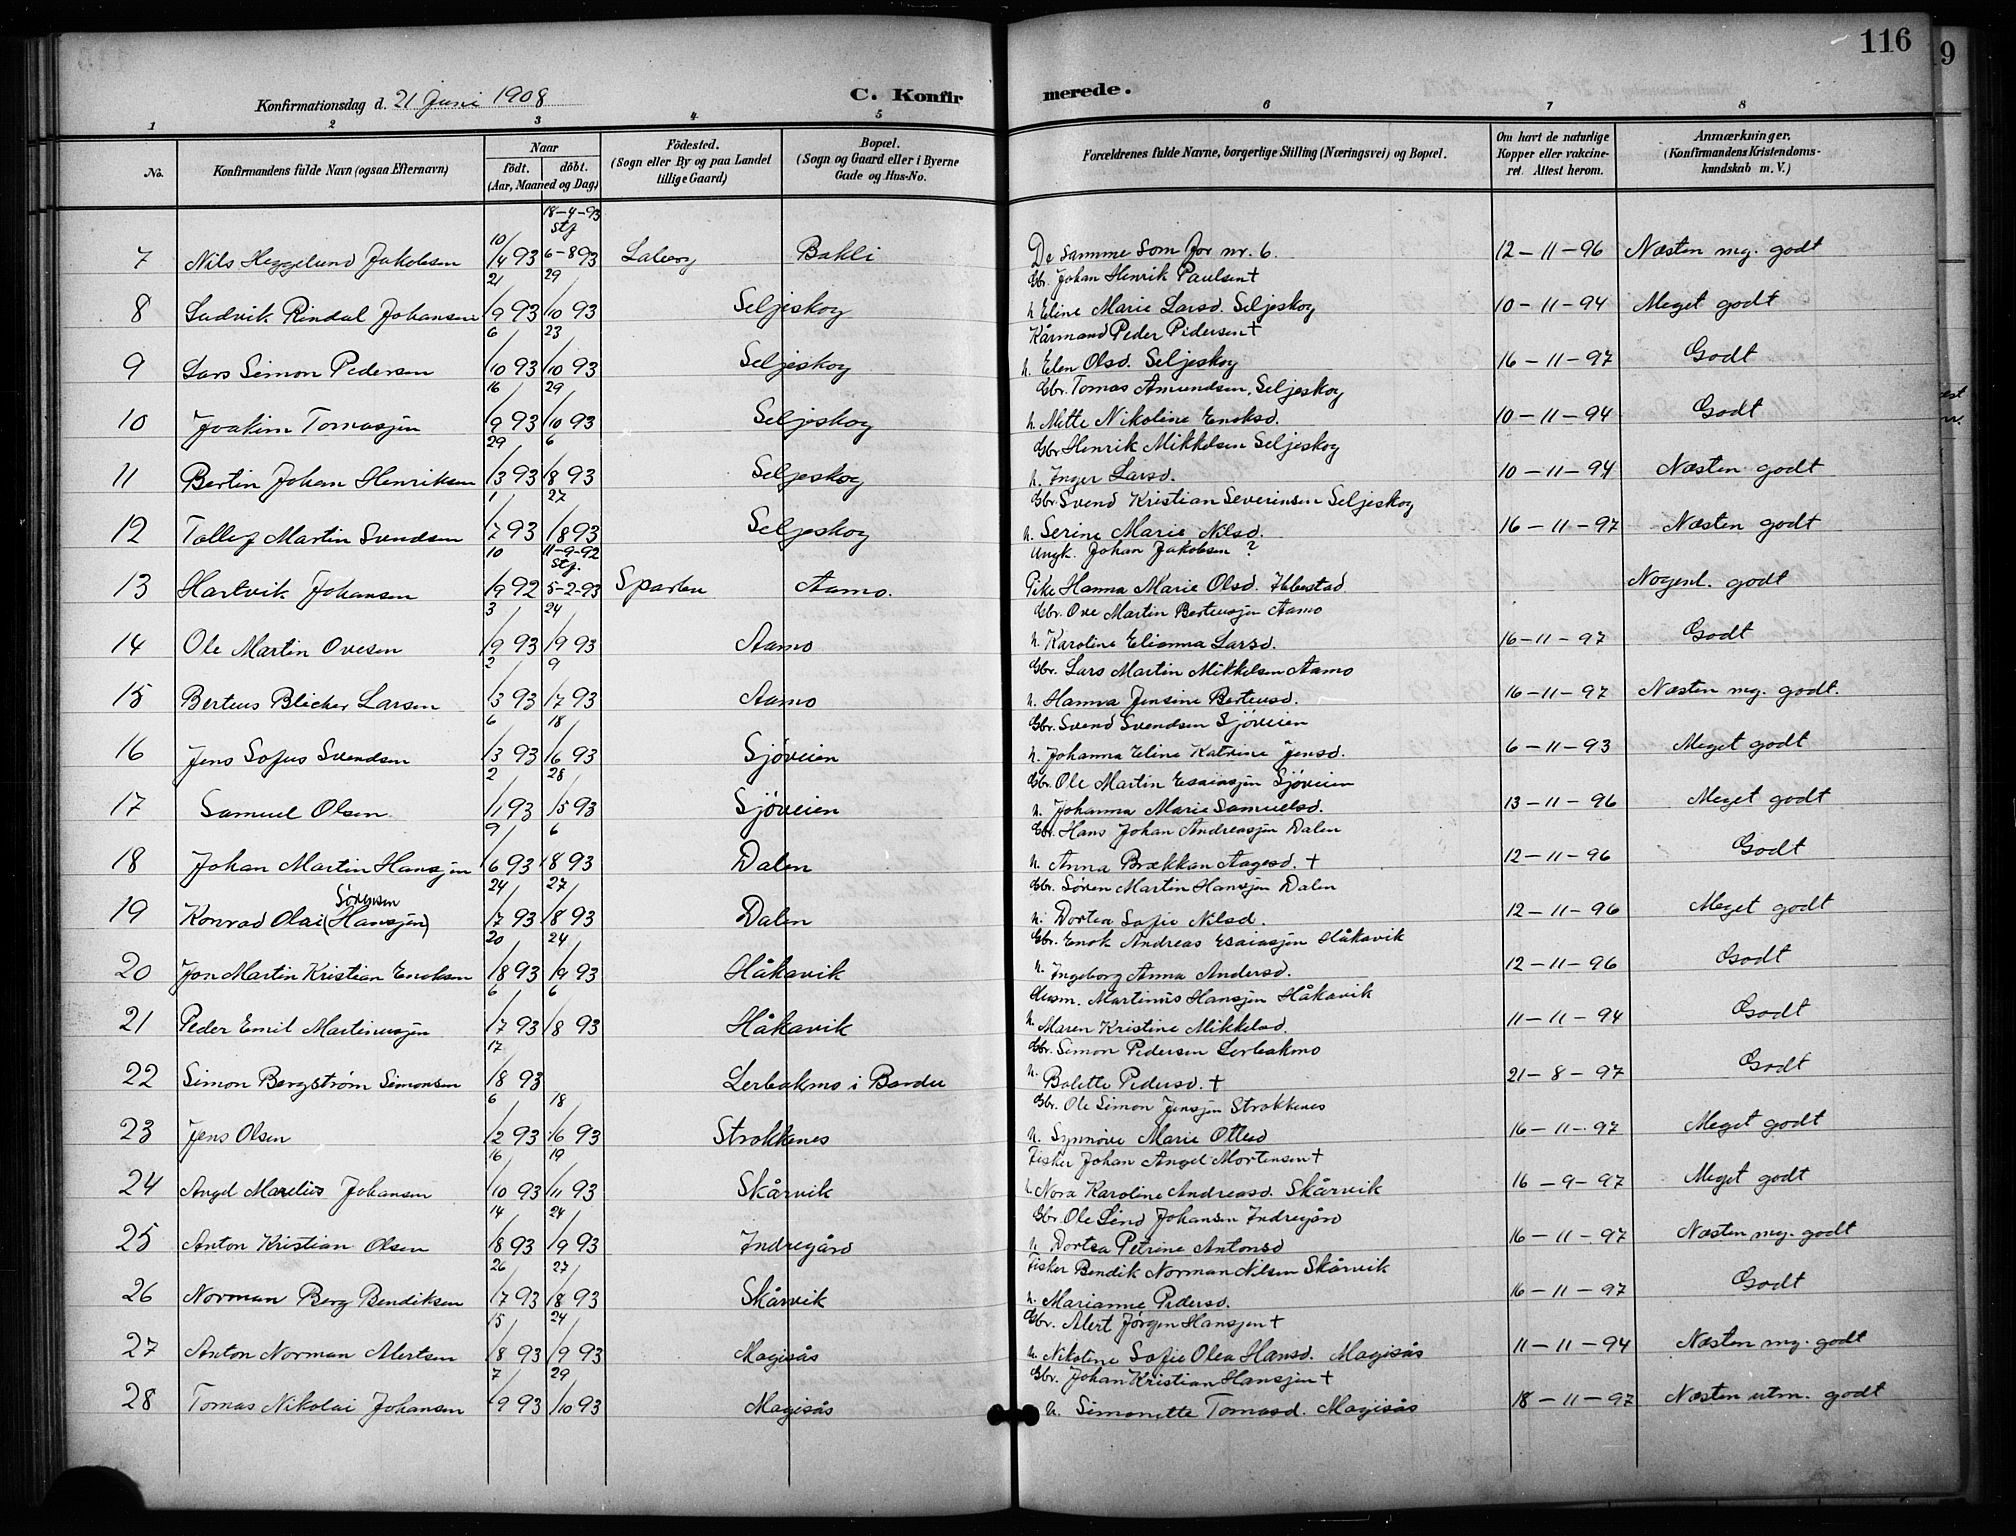 116
9
Konfirmationsdag d. 21 Juni 1908
C. Konfir
merede.
1 2 3 4 5 6 7 8
No.
Konfirmandens fulde Navn (ogsaa Efternavn)
Naar
födt. döbt.
(Aar, Maaned og Dag)
Födested.
(Sogn eller By og paa Landet
tillige Gaard)
Bopæl.
(Sogn og Gaard eller i Byerne
Gade og Hus-No.
Forældrenes fulde Navne, borgerlige Stilling (Næringsvei) og Bopæl.
Om havt de naturlige
Kopper eller vakcine-
ret. Attest herom.
Anmærkninger.
(Konfirmandens Kristendoms-
kundskab m. V.)
18-4-93
stf
7 Nils Heggelund Jakobsen 10/4 93 6-8 93 Laberg Bakli De samme som for nr. 6. 12-11-96 Næsten meg. godt
Gbr. Johan Henrik Paulsen †
8 Ludvik Rindal Johansen 21/9 93 29/10 93 Seljeskog h. Eline Marie Larsd. Seljeskog 10-11-94 Meget godt
Kårmand Peder Pedersen †
9 Lars Simon Pedersen 6/10 93 23/10 93 Seljeskog h. Elen Olsd. Seljeskog 16-11-97 Godt
Gbr. Tomas Amundsen, Seljeskog
10 Joakim Tomassen 16/9 93 29/10 93 Seljeskog h. Mette Nikoline Enoksd. 10-11-94 Godt
Gbr Henrik Mikkelsen Seljeskog
11 Bertin Johan Henriksen 29/3 93 6/8 93 Seljeskog h. Inger Larsd. 10-11-94 Næsten godt
Gbr. Svend Kristian Severinsen Seljeskog
12 Tollef Martin Svendsen 1/7 93 27/8 93 Seljeskog h. Serine Marie Nilsd. 16-11-97 Næsten godt
11-9-92 stf. Ungk. Johan Jakobsen ?
13 Hartvik Johansen 10/9 92 5-2-93 Sparbu Aamo. Pike Hanna Marie Olsd. Ibbestad Nogenl. godt
Gbr. Ove Martin Berteussen Aamo
14 Ole Martin Ovesen 3/9 93 24/9 93 Aamo h. Karoline Elianna Larsd. 16-11-97 Godt
Gbr. Lars Martin Mikkelsen Aamo
15 Berteus Blicher Larsen 2/3 93 9/7 93 Aamo h. Hanna Jensine Berteusd. 16-11-97 Næsten meg. godt.
Gbr. Svend Svendsen Sjøveien
16 Jens Sofus Svendsen 6/3 93 18/6 93 Sjøveien h. Johanna Eline Katrine Jensd. 6-11-93 Meget godt
Gbr. Ole Martin Esaiassen Sjøveien
17 Samuel Olsen 2/1 93 28/5 93 Sjøveien h. Johanna Marie Samuelsd. 13-11-96 Meget godt
Gbr. Hans Johan Andreassen Dalen
18 Johan Martin Hanssen 9/6 93 6/8 93 Dalen h. Anna Brækkan Aagesd. † 12-11-96 Godt
Sørensen Gbr. Søren Martin Hanssen Dalen
19 Konrad Olai (Hanssen) 24/7 93 27/8 93 Dalen h. Dortea Sofie Nilsd. 12-11-96 Meget godt
Gbr. Enok Andreas Esaiassen Håkavik
20 Jon Martin Kristian Enoksen 20/8 93 24/9 93 Håkavik h. Ingeborg Anna Andersd. 12-11-96 Godt
Husm. Martinus Hanssen Håkavik
21 Peder Emil Martinussen 6/7 93 6/8 93 Håkavik h. Maren Kristine Mikkelsd. 11-11-94 Godt
Gbr. Simon Pedersen Lerbakmo
22 Simon Bergstrøm Simonsen 17/8 93 Lerbakmo i Bardu h. Bolette Pedersd. † 21-8-97 Godt
Gbr. Ole Simon Jenssen Strokkenes
23 Jens Olsen 6/2 93 18/6 93 Strokkenes h. Synnøve Marie Ottesd 16-11-97 Meget godt
Fisker Johan Angel Mortensen †
24 Angel Marelius Johansen 16/10 93 19/11 93 Skårvik h. Nora Karoline Andreasd. Skårvik 16-9-97 Meget godt
Gbr. Ole Lind Johansen Indregård
25 Anton Kristian Olsen 14/8 93 24/9 93 Indregård h. Dortea Petrine Antonsd 16-11-97 Næsten meg. godt
Fisker Bendik Norman Nilsen Skårvik
26 Norman Berg Bendiksen 26/7 93 27/8 93 Skårvik h. Marianne Pedersd. 16-11-97 Godt
Gbr. Alert Jørgen Hanssen †
27 Anton Norman Alertsen 15/8 93 24/9 93 Magisås h. Nikoline Sofie Olea Hansd. Magisås 11-11-94 Næsten meg. godt
Gbr. Johan Kristian Hanssen †
28 Tomas Nikolai Johansen 7/9 93 29/10 93 Magisås h. Simonette Tomasd. Magisås 18-11-97 Næsten utm. godt